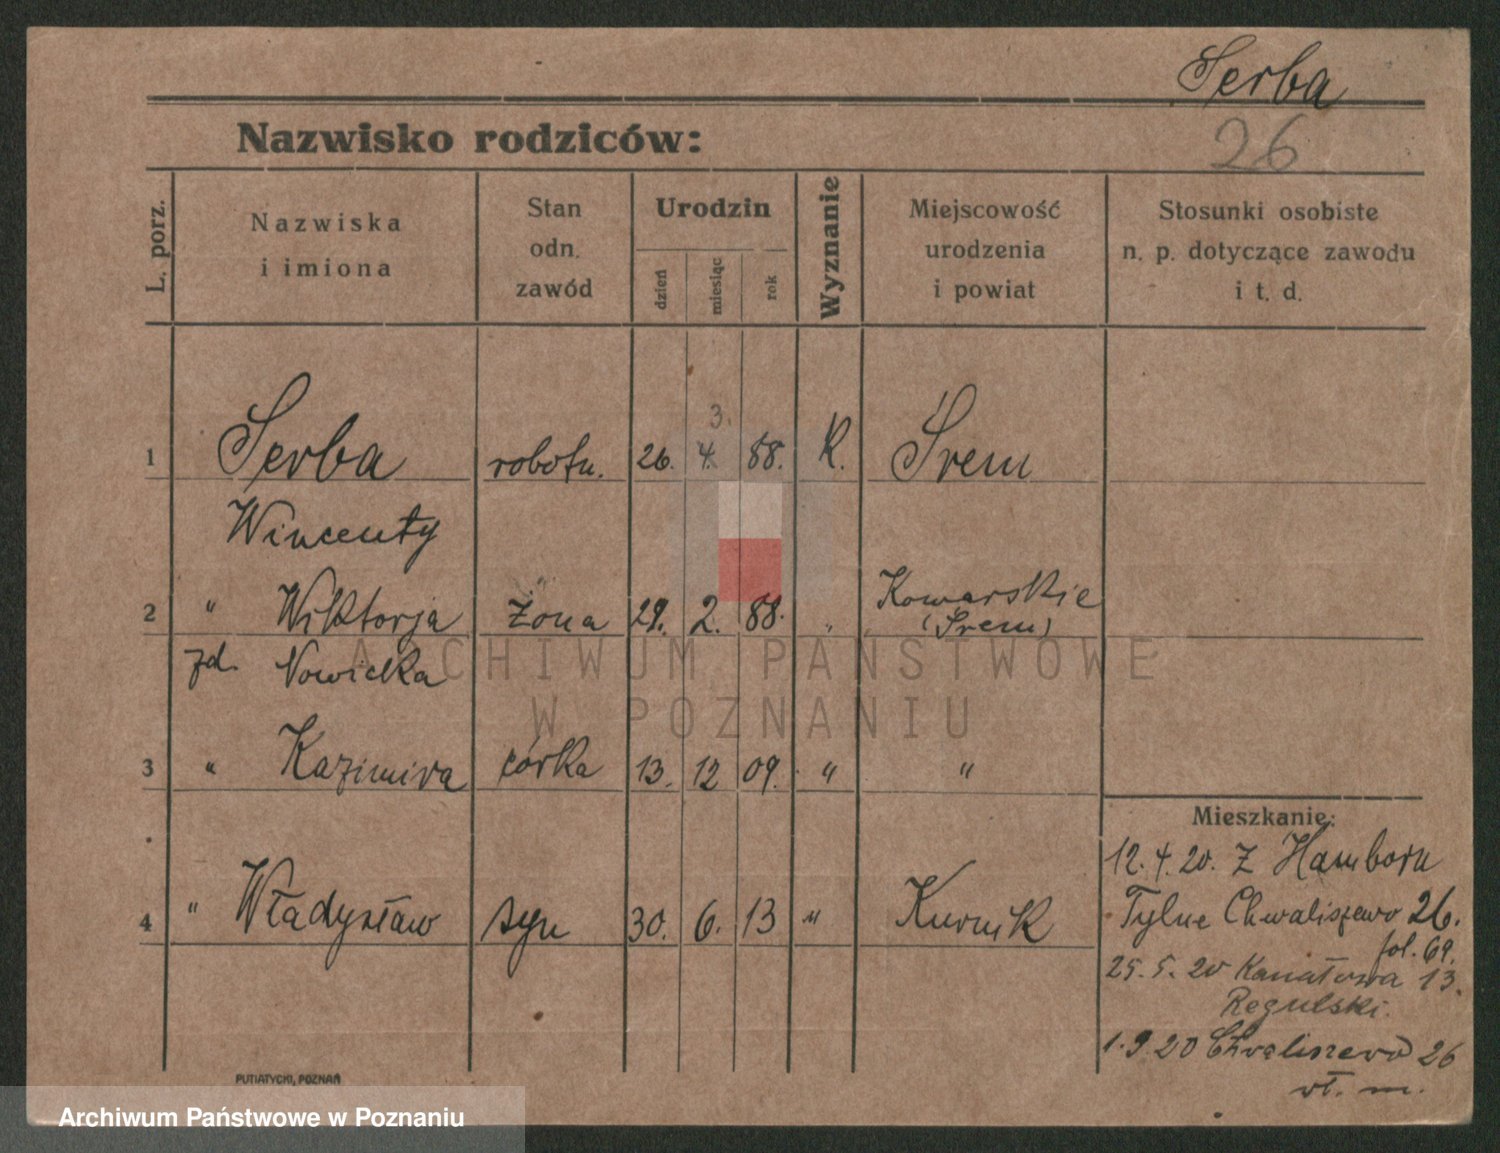 Serba
Nazwisko rodziców:
26
L. porz.
Nazwiska
i imiona
Stan
odn.
zawód
Urodzin
dzień
miesiąc
rok
Wyznanie
Miejscowość
urodzenia
i powiat
Stosunki osobiste
n. p. dotyczące zawodu
i t. d.
3.
1 Serba robotn. 26. 4. 88. K. Śrem
Wincenty
2 " Wiktorja żona 29. 2. 88. " Kowarskie
(Śrem)
zd. Nowicka
3 " Kazimira córka 13. 12 09. " "
4 " Władysław syn 30. 6. 13 " Kurnik
Mieszkanie:
12. 4. 20. z Hamborn
Tylne Chwaliszewo 26.
fol. 69.
25. 5. 20 Kanałowa 13.
Regulski.
1. 9. 20 Chwaliszewo 26
wł. m.
PUTIATYCKI, POZNAŃ
ARCHIWUM PAŃSTWOWE
W POZNANIU
Archiwum Państwowe w Poznaniu